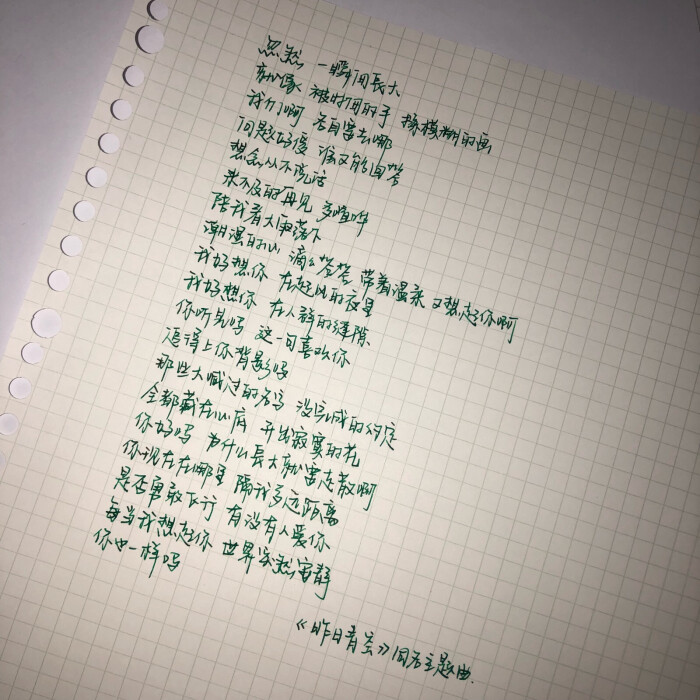 忽然 一瞬间長大
就像 被时间的手 擦模糊的画
我们啊 各自害去哪
问题好傻 谁又能回答
想念从不说话
来不及的再见 多喧哗
陪我看大雨落下
潮湿的心 滴滴答答 带着温柔 又想起你啊
我好想你 在起风的夜里
我好想你 在人群的缝隙
你听见吗 这一句喜欢你
追得上你背影吗
那些大喊过的名字 没完成的约定
全都藏在心底 开出寂寞的花
你好吗 为什么長大就害走散啊
你现在在哪里 隔我多远距离
是否勇敢飞行 有没有人爱你
每当我想起你 世界突然安静
你也一样吗
《昨日青空》同名主题曲.